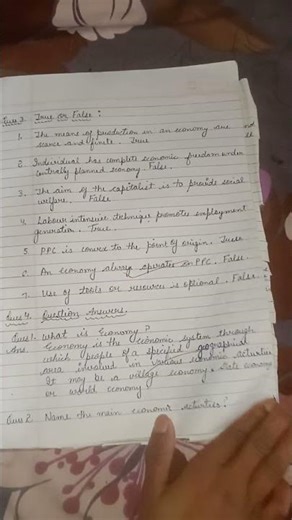 Ques 3. True or False :
1. The means of production in an economy are not
scarce and finite. True
2. Individual has complete economic freedom under
centrally planned economy. False.
3. The aim of the capitalist is to provide social
welfare. False
4. Labour intensive technique promotes employment
generation. True.
5. PPC is convex to the point of origin. True
6. An economy always operates on PPC. False
7. Use of tools or resources is optional. False.
Ques 4. Question Answers.
Ques 1. What is Economy?
Ans. Economy is the economic system through
which people of a specified geographical
area involved in various economic activities
It may be a village economy, State economy
or world economy
Ques 2. Name the main economic activities?